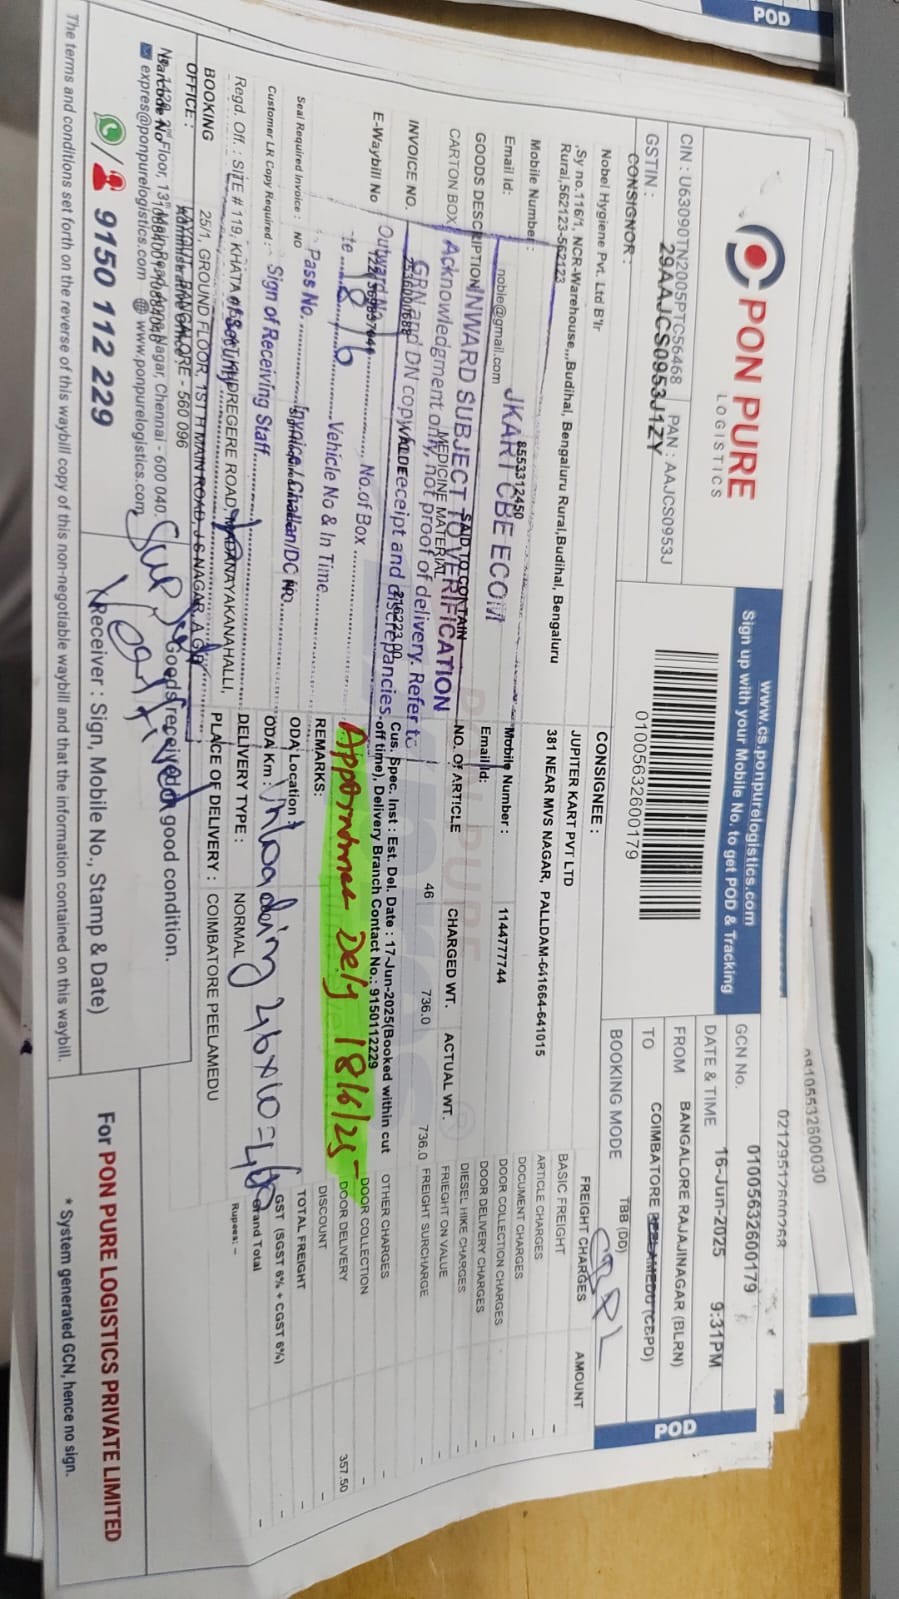 POD
PON PURE
LOGISTICS
www.cs.ponpurelogistics.com
Sign up with your Mobile No. to get POD & Tracking
CIN : U63090TN2005PTC56468 PAN : AAJCS0953J
GSTIN : 29AAJCS0953J1ZY
01005632600179
GCN No. 01005632600179
DATE & TIME 16-Jun-2025 9:31PM
FROM BANGALORE RAJAJINAGAR (BLRN)
TO COIMBATORE PEELAMEDU (CBPD)
BOOKING MODE TBB (DD)
POD
CONSIGNOR :
Nobel Hygiene Pvt. Ltd B'lr
,Sy no.116/1, NCR-Warehouse,,,Budihal, Bengaluru Rural,Budihal, Bengaluru
Rural,562123-562123
Mobile Number : 8553312450
Email Id: noble@gmail.com
CONSIGNEE :
JUPITER KART PVT LTD
381 NEAR MVS NAGAR, PALLDAM-641664-641015
Mobile Number : 1144777744
Email Id:
JKART CBE ECOM
INWARD SUBJECT TO VERIFICATION
Acknowledgment only, not proof of delivery. Refer to
GRN and DN copy for receipt and discrepancies.
Outward No. No.of Box
18/6 Vehicle No & In Time
Pass No. Invoice / Challan/DC No.
Sign of Receiving Staff
GOODS DESCRIPTION SAID TO CONTAIN
CARTON BOX MEDICINE MATERIAL
NO. OF ARTICLE CHARGED WT. ACTUAL WT.
46 736.0 736.0
INVOICE NO. VALUE
E-Waybill No
Cus. Spec. Inst : Est. Del. Date : 17-Jun-2025(Booked within cut
off time), Delivery Branch Contact No.: 9150112229
Seal Required Invoice : NO
Customer LR Copy Required :
REMARKS:
Dely 18/6/25
ODA Location :
ODA Km :
Unloading 46x10=460
DELIVERY TYPE : NORMAL
PLACE OF DELIVERY : COIMBATORE PEELAMEDU
FREIGHT CHARGES AMOUNT
BASIC FREIGHT -
ARTICLE CHARGES -
DOCUMENT CHARGES -
DOOR COLLECTION CHARGES -
DOOR DELIVERY CHARGES -
DIESEL HIKE CHARGES -
FRIEGHT ON VALUE -
FREIGHT SURCHARGE -
OTHER CHARGES -
DOOR COLLECTION -
DOOR DELIVERY 357.50
DISCOUNT -
TOTAL FREIGHT -
GST (SGST 6% + CGST 6%) -
Grand Total -
Rupees: –
Regd. Off. : SITE # 119, KHATA
KUDREGERE ROAD, MADANAYAKANAHALLI,
BOOKING OFFICE : 25/1, GROUND FLOOR, 1ST H MAIN ROAD, J S NAGAR,
BANGALORE - 560 096
2nd Floor, 13th Main Road, Anna Nagar, Chennai - 600 040.
expres@ponpurelogistics.com www.ponpurelogistics.com
9150 112 229
Goods received in good condition.
(Receiver : Sign, Mobile No., Stamp & Date)
For PON PURE LOGISTICS PRIVATE LIMITED
* System generated GCN, hence no sign.
The terms and conditions set forth on the reverse of this waybill copy of this non-negotiable waybill and that the information contained on this waybill.